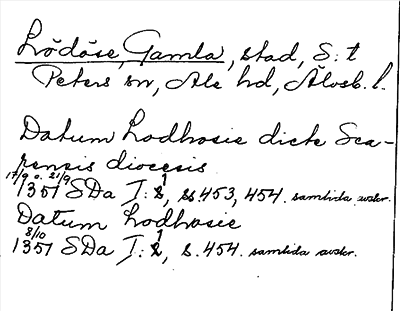 Lödöse, Gamla, stad, S:t
Peters sn, Ale hd, Älvsb. l.
Datum Lodhosie dicte Sca-
rensis diocesis
17/9 o. 21/9
1351 SDa I:1, ss. 453, 454. samtida avskr.
Datum Lodhosie
8/10
1351 SDa I:1, s. 454. samtida avskr.